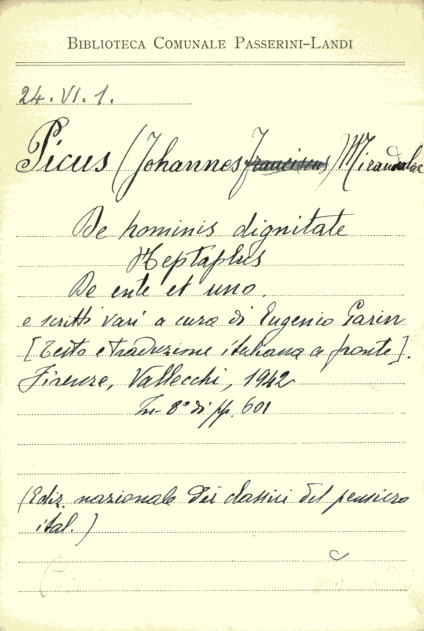 BIBLIOTECA COMUNALE PASSERINI-LANDI
24. VI. 1.
Picus (Johannes Franciscus) Mirandulae
De hominis dignitate
Heptaplus
De ente et uno
e scritti vari a cura di Eugenio Garin
[Testo e traduzione italiana a fronte].
Firenze, Vallecchi, 1942
In-8° di pp. 601
(Ediz. nazionale dei classici del pensiero
ital.)
c